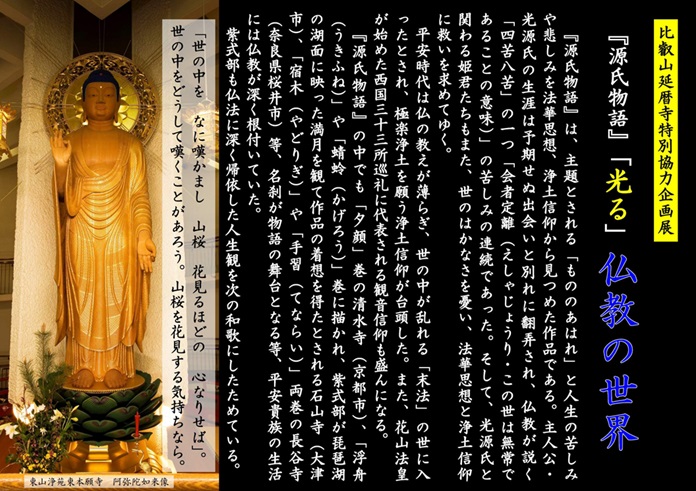 比叡山延暦寺特別協力企画展
『源氏物語』「光る」仏教の世界
『源氏物語』は、主題とされる「もののあはれ」と人生の苦しみ
や悲しみを法華思想、浄土信仰から見つめた作品である。主人公・
光源氏の生涯は予期せぬ出会いと別れに翻弄され、仏教が説く
「四苦八苦」の一つ「会者定離（えしゃじょうり・この世は無常で
あることの意味）」の苦しみの連続であった。そして、光源氏と
関わる姫君たちもまた、世のはかなさを憂い、法華思想と浄土信仰
に救いを求めてゆく。
平安時代は仏の教えが薄らぎ、世の中が乱れる「末法」の世に入
ったとされ、極楽浄土を願う浄土信仰が台頭した。また、花山法皇
が始めた西国三十三所巡礼に代表される観音信仰も盛んになる。
『源氏物語』の中でも「夕顔」巻の清水寺（京都市）、「浮舟
（うきふね）」や「蜻蛉（かげろう）」巻に描かれ、紫式部が琵琶湖
の湖面に映った満月を観て作品の着想を得たとされる石山寺（大津
市）、「宿木（やどりぎ）」や「手習（てならい）」両巻の長谷寺
（奈良県桜井市）等、名刹が物語の舞台となる等、平安貴族の生活
には仏教が深く根付いていた。
紫式部も仏法に深く帰依した人生観を次の和歌にしたためている。
「世の中を　なに嘆かまし　山桜　花見るほどの　心なりせば」。
世の中をどうして嘆くことがあろう。山桜を花見する気持ちなら。
東山浄苑東本願寺　阿弥陀如来像